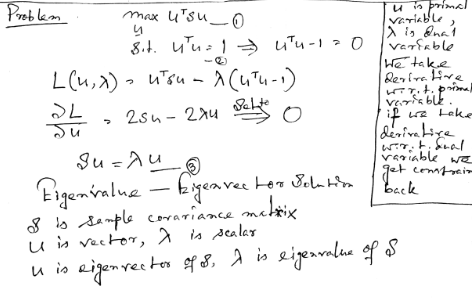 Problem max uᵀSu — ①
u
s.t. uᵀu = 1 ⇒ uᵀu - 1 = 0
— ②
L(u, λ) = uᵀSu - λ(uᵀu - 1)
∂L/∂u = 2Su - 2λu set to ⇒ 0
Su = λu — ③
Eigenvalue — Eigenvector Solution
S is sample covariance matrix
u is vector, λ is scalar
u is eigenvector of S, λ is eigenvalue of S
u is primal
variable,
λ is dual
variable
We take
derivative
w.r.t. primal
variable.
if we take
derivative
w.r.t. dual
variable we
get constrain
back